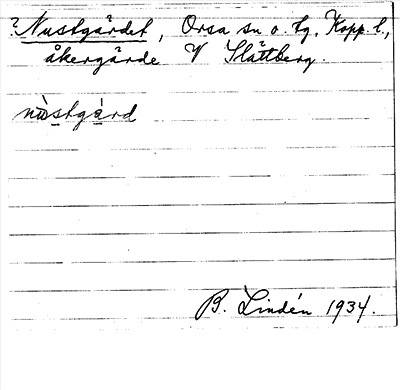 ? Nustgärdet, Orsa sn o. tg, Kopp. l.,
åkergärde V Slättberg.
nùstgàrd
B. Lindén 1934.